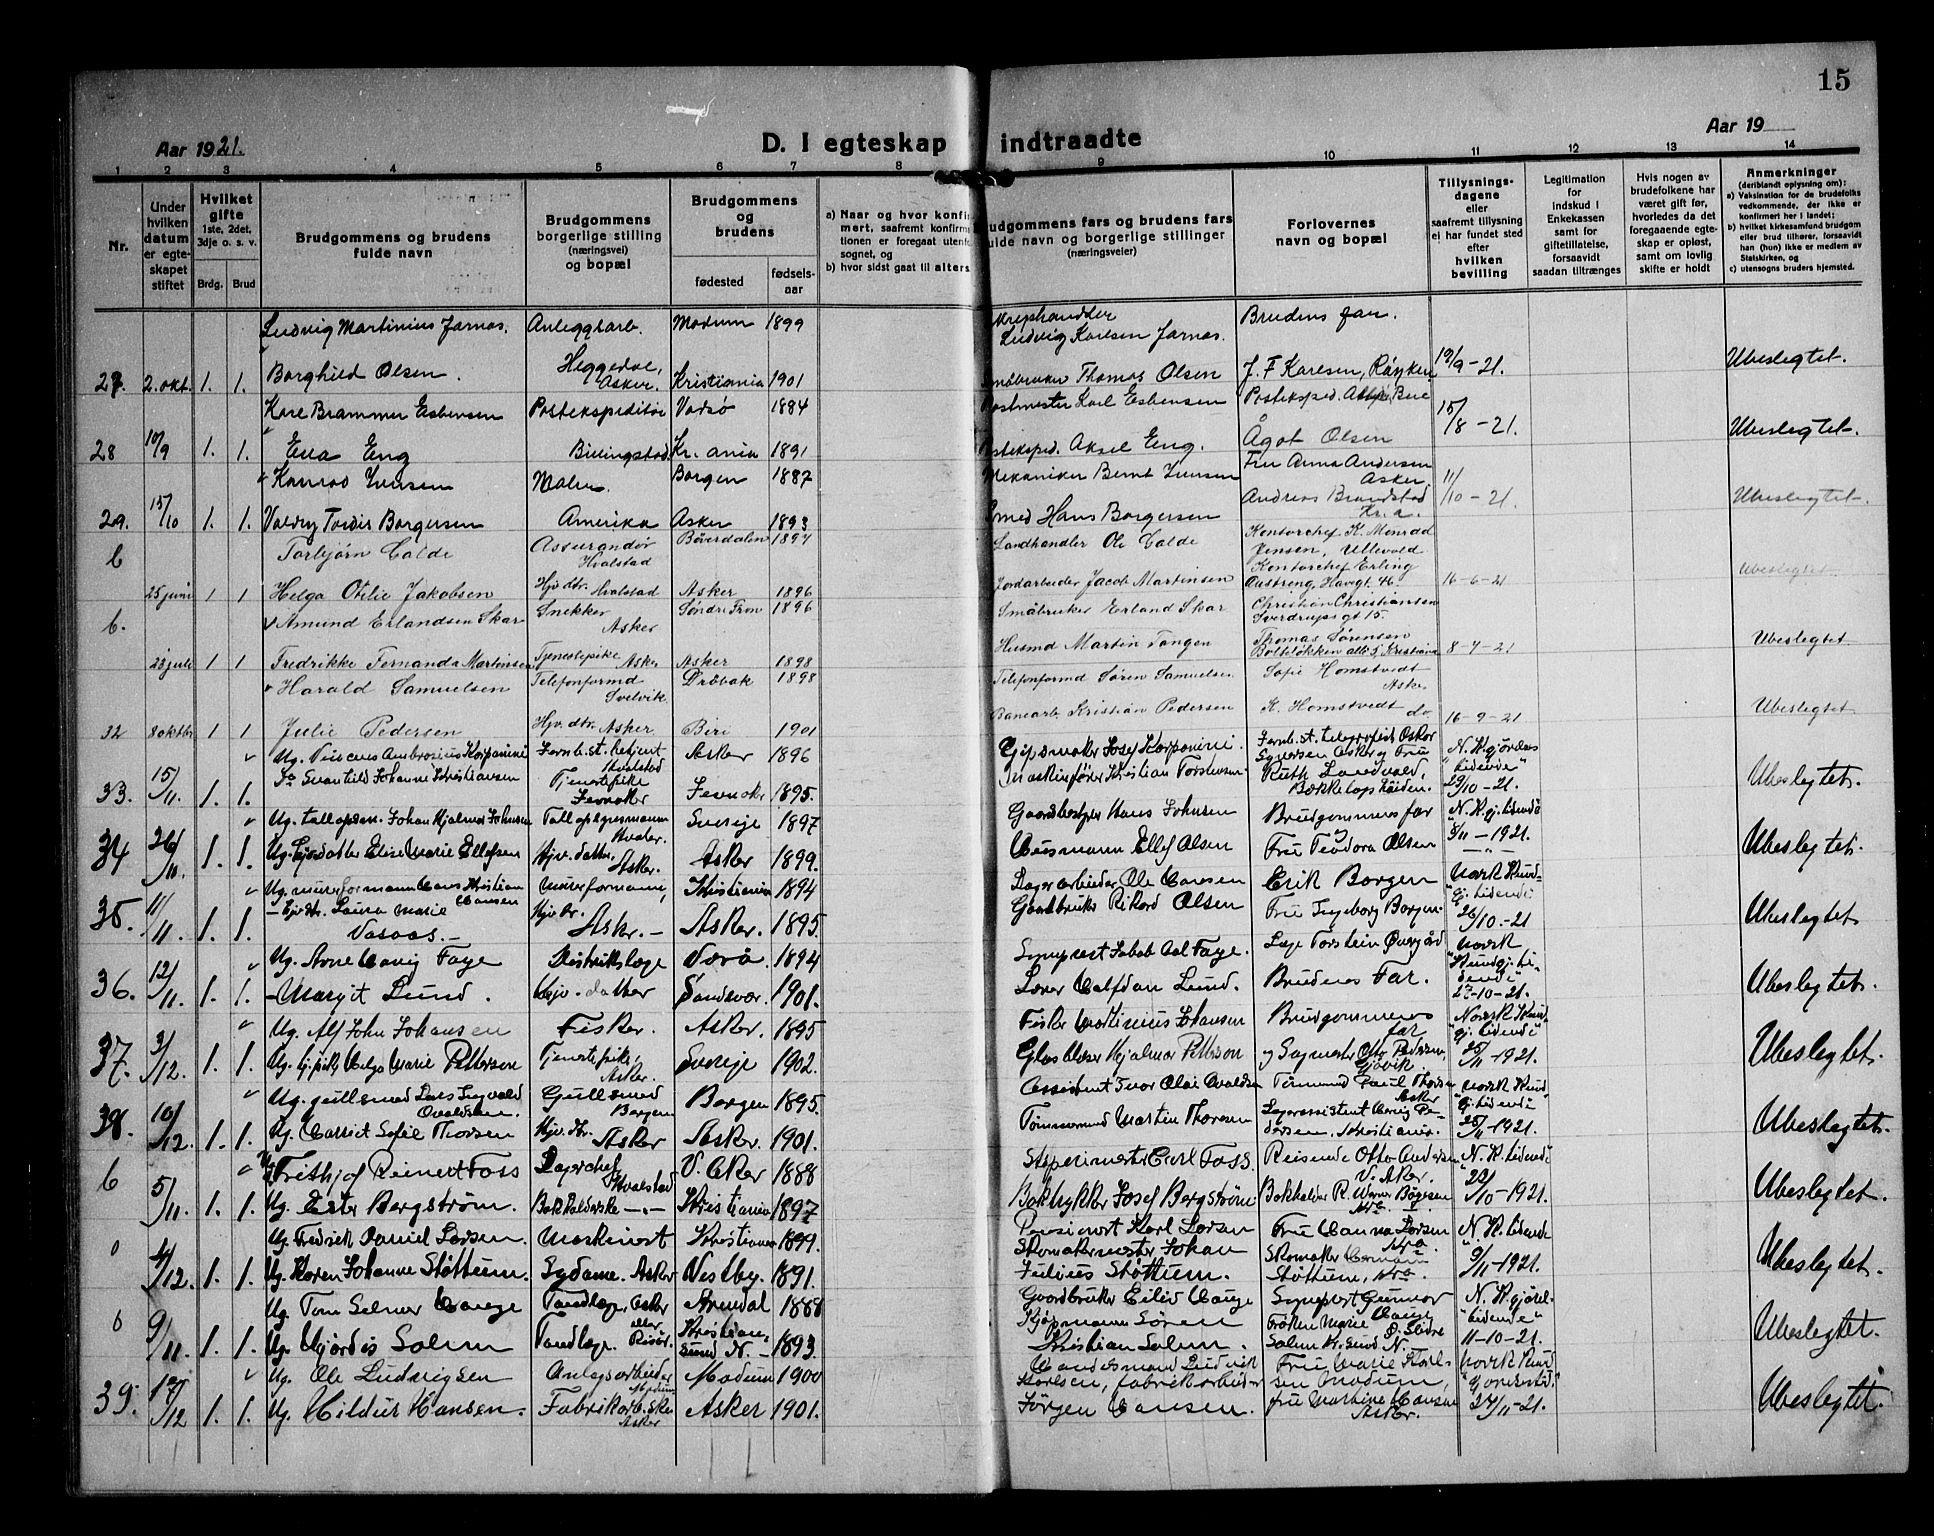 15
Aar 1921.
D. I egteskap indtraadte
Aar 19
1 2 3 4 5 6 7 8 9 10 11 12 13 14
Nr.
Under hvilken datum er egteskapet stiftet
Hvilket gifte 1ste, 2det, 3dje o. s. v.
Brdg. Brud
Brudgommens og brudens fulde navn
Brudgommens borgerlige stilling (næringsvei) og bopæl
Brudgommens og brudens
fødested fødselsaar
a) Naar og hvor konfirmert, saafremt konfirmationen er foregaat utenfor sognet, og
b) hvor sidst gaat til alters
Brudgommens fars og brudens fars fulde navn og borgerlige stillinger (næringsveier)
Forlovernes navn og bopæl
Tillysningsdagene eller saafremt tillysning ei har fundet sted efter hvilken bevilling
Legitimation for indskud i Enkekassen samt for giftetillatelse, forsaavidt saadan tiltrænges
Hvis nogen av brudefolkene har været gift før, hvorledes da det foregaaende egteskap er opløst, samt om lovlig skifte er holdt
Anmerkninger (deriblandt oplysning om):
a) Vaksination for de brudefolks vedkommende, der ikke er konfirmert her i landet;
b) hvilket kirkesamfund brudgom eller brud tilhører, forsaavidt han (hun) ikke er medlem av Statskirken, og
c) utensogns bruders hjemsted.
Ludvig Martinius Jarnas. Anleggsarb. Modum 1899 Ludvig Karlsen Jarnas. Brudens far.
27. 2. okt. 1. 1. Borghild Olsen. Heggedal, Asker. Kristiania 1901 Småbruker Thomas Olsen J. F. Karlsen, Røyken 19/9-21. Ubeslegtet.
Karl Brammer Esbensen Postekspeditør Vadsø 1884 Postmester Karl Esbensen Posteksped.
28 10/9 1. 1. Eva Eng Billingstad. Kr.ania 1891 Posteksped. Aksel Eng. Ågot Olsen 15/8-21. Ubeslegtet.
Konrad Iversen Maler. Borgen 1887 Mekaniker Bernt Iversen Fru Anna Andersen Asker
29. 15/10 1. 1. Valdry Tordis Borgersen Amerika Asker 1893 Smed Hans Borgersen Andreas Brandstad Kr.a. 11/10-21. Ubeslegtet.
b Torbjørn Galde Assurandør Hvalstad Bøverdalen 1894 Landhandler Ole Galde Kontorchef K. Monrad Jensen, Ullevold
25 juni 1 1 Helga Otilie Jakobsen Hjv. dtr. Hvalstad Asker 1896 Jordarbeider Jacob Martinsen Kontorchef Erling Austreng, Havegt. 46. 16-6-21 Ubeslegtet
b. Amund Erlandsen Skar Snekker Asker Søndre Fron 1896 Småbruker Erland Skar Christian Christiansen Sverdrupsgt 15.
23 juli 1 1 Fredrikke Fernanda Martinsen Tjenestepike Asker Asker 1898 Husmd Martin Tangen Thomas Sørensen Bolteløkken alle 5, Kristiania 8-7-21 Ubeslegtet
Harald Samuelsen Telefonformd Svelvik Drøbak 1898 Telefonformd Søren Samuelsen Sofie Homstvedt Asker
32 8 oktbr 1 1 Julie Pedersen Hjv. dtr. Asker Biri 1901 Banearb. Kristian Pedersen K. Homstvedt do 16-9-21 Ubeslegtet
Ug. Vincens Ambrosius Korponini Jernb.st. betjent Hvalstad Asker 1896 Gipsmaker Josef Korponini. Jernb.st. telegrafist Oskar Syversen Asker og Fru
33. 15/11. 1. 1. Svanhild Johanne Kristiansen Tjenestepike Fevnaker 1895. Maskinfører Kristian Torstensen Ruth Landvald, Bækkelagshøiden. N. Kgjørelses "tidende" 29/10-21. Ubeslegtet.
Johan Hjalmar Johnsen Sverige 1897 Gaardbestyrer Hans Johnsen Brudgommens far N. K. gj. tidende
34 26/11. 1. 1. Ug. Hjv.datter Elise Marie Ellefsen Hjv. datter, Asker. Asker 1899. Husmann Ellef Olsen Fru Teodora Olsen 8/11-1921. Ubeslegtet.
Ug. murerformann Hans Kristian Hansen Murerformann, Kristiania 1894 Lagerarbeider Ole Hansen Erik Borgen Norsk Kund-
35. 11/11. 1. 1. Hjv. dtr. Laura Marie Vasaas.- Hjv. dtr. Asker.- Asker. 1895. Gaardbruker Rikard Olsen Fru Ingeborg Borgen. gj. tidende 26/10-21 Ubeslegtet
Ug. Arne Hauig Faye Distriktslæge Værø. 1894 Sogneprest Jakob Aal Faye. Læge Torstein Øvergård Norsk
36. 12/11. 1. 1. -Margit Lund. Hjv.-datter Sandsvær. 1901. Lærer Halfdan Lund. Brudens Far. "Kundgj. tidende" 27-10-21. Ubeslegtet.
Ug. Alf John Johansen Fisker. Asker. 1895 Fisker Martinius Johansen Brudgommens far Norsk Kund-
37. 3/12. 1. 1. Helga Marie Petterson Tjenestepike, Asker. Sverige 1902. Glasblåser Hjalmar Petterson og Sagmester Otto Pedersen, Gjøvik. gj. tidende 25/11-1921. Ubeslegtet.
Ug. gullsmed Lars Ingvald Ovaldsen. Gullsmed Borgen Borgen 1895. Assistent Ivar Olai Ovaldsen Tømmermd Paul Thorsen Asker Norsk Kund-
38. 10/12. 1. 1. Ug. Harriet Sofie Thorsen Hjv. dtr. Asker Asker. 1901. Tømmermd Martin Thorsen Lagerassistent Haug Pedersen, Kristiania. gj. tidende 25/11-1921. Ubeslegtet.
b Ug. Frithjof Reinert Foss Lagerchef Hvalstad V. Aker 1888 Støperimester Carl Foss. Reisende Otto Andersen V. Aker. N. K. tidende
5/11. 1. 1. Ug. Ester Bergstrøm. Bokholderske -.- Kristiania 1897 Boktrykker Josef Bergstrøm Bokholder R. Werner Bøgesen 22/10-1921. Ubeslegtet.
Ug. Fredrik Daniel Larsen. Maskinist Kristiania 1899. Pensionist Karl Larsen Fru Hanna Larsen Kra. N. K. tidende
4/12. 1. 1. Ug. Karen Johanne Støttum. Sydame. Asker Vestby. 1891. Skomakermester Johan Julius Støttum. Skomaker Hermann Støttum, Kra. 9/11-1921. Ubeslegtet.
Ug. Tom Selmer Hauge Tandlæge, Asker Arendal 1888 Gaardbruker Eiliv Hauge Sogneprest Gunnar Hauge Ø. Slidre N. K. gjørel- "tidende"
9/11. 1. 1. Ug. Hjørdis Salen Tandlæge. Kristiansund N.- 1893. Kjøpmann Søren Kristian Salen. Frøken Marie Salen Kr.sund N. 11-10-21. Ubeslegtet.
Ug. Ole Ludvigsen Anlegsarbeider Modum Modum 1900 Karlsen, fabrikarbeider Fru Marie Karlsen Modum, Norsk Kund
39. 17/12 1. 1. Ug. Hildur Hansen. Fabrikarb.ske Asker Asker 1901. Jørgen Hansen. fru Martine Hansen Asker. 24/11-21. Ubeslegtet.